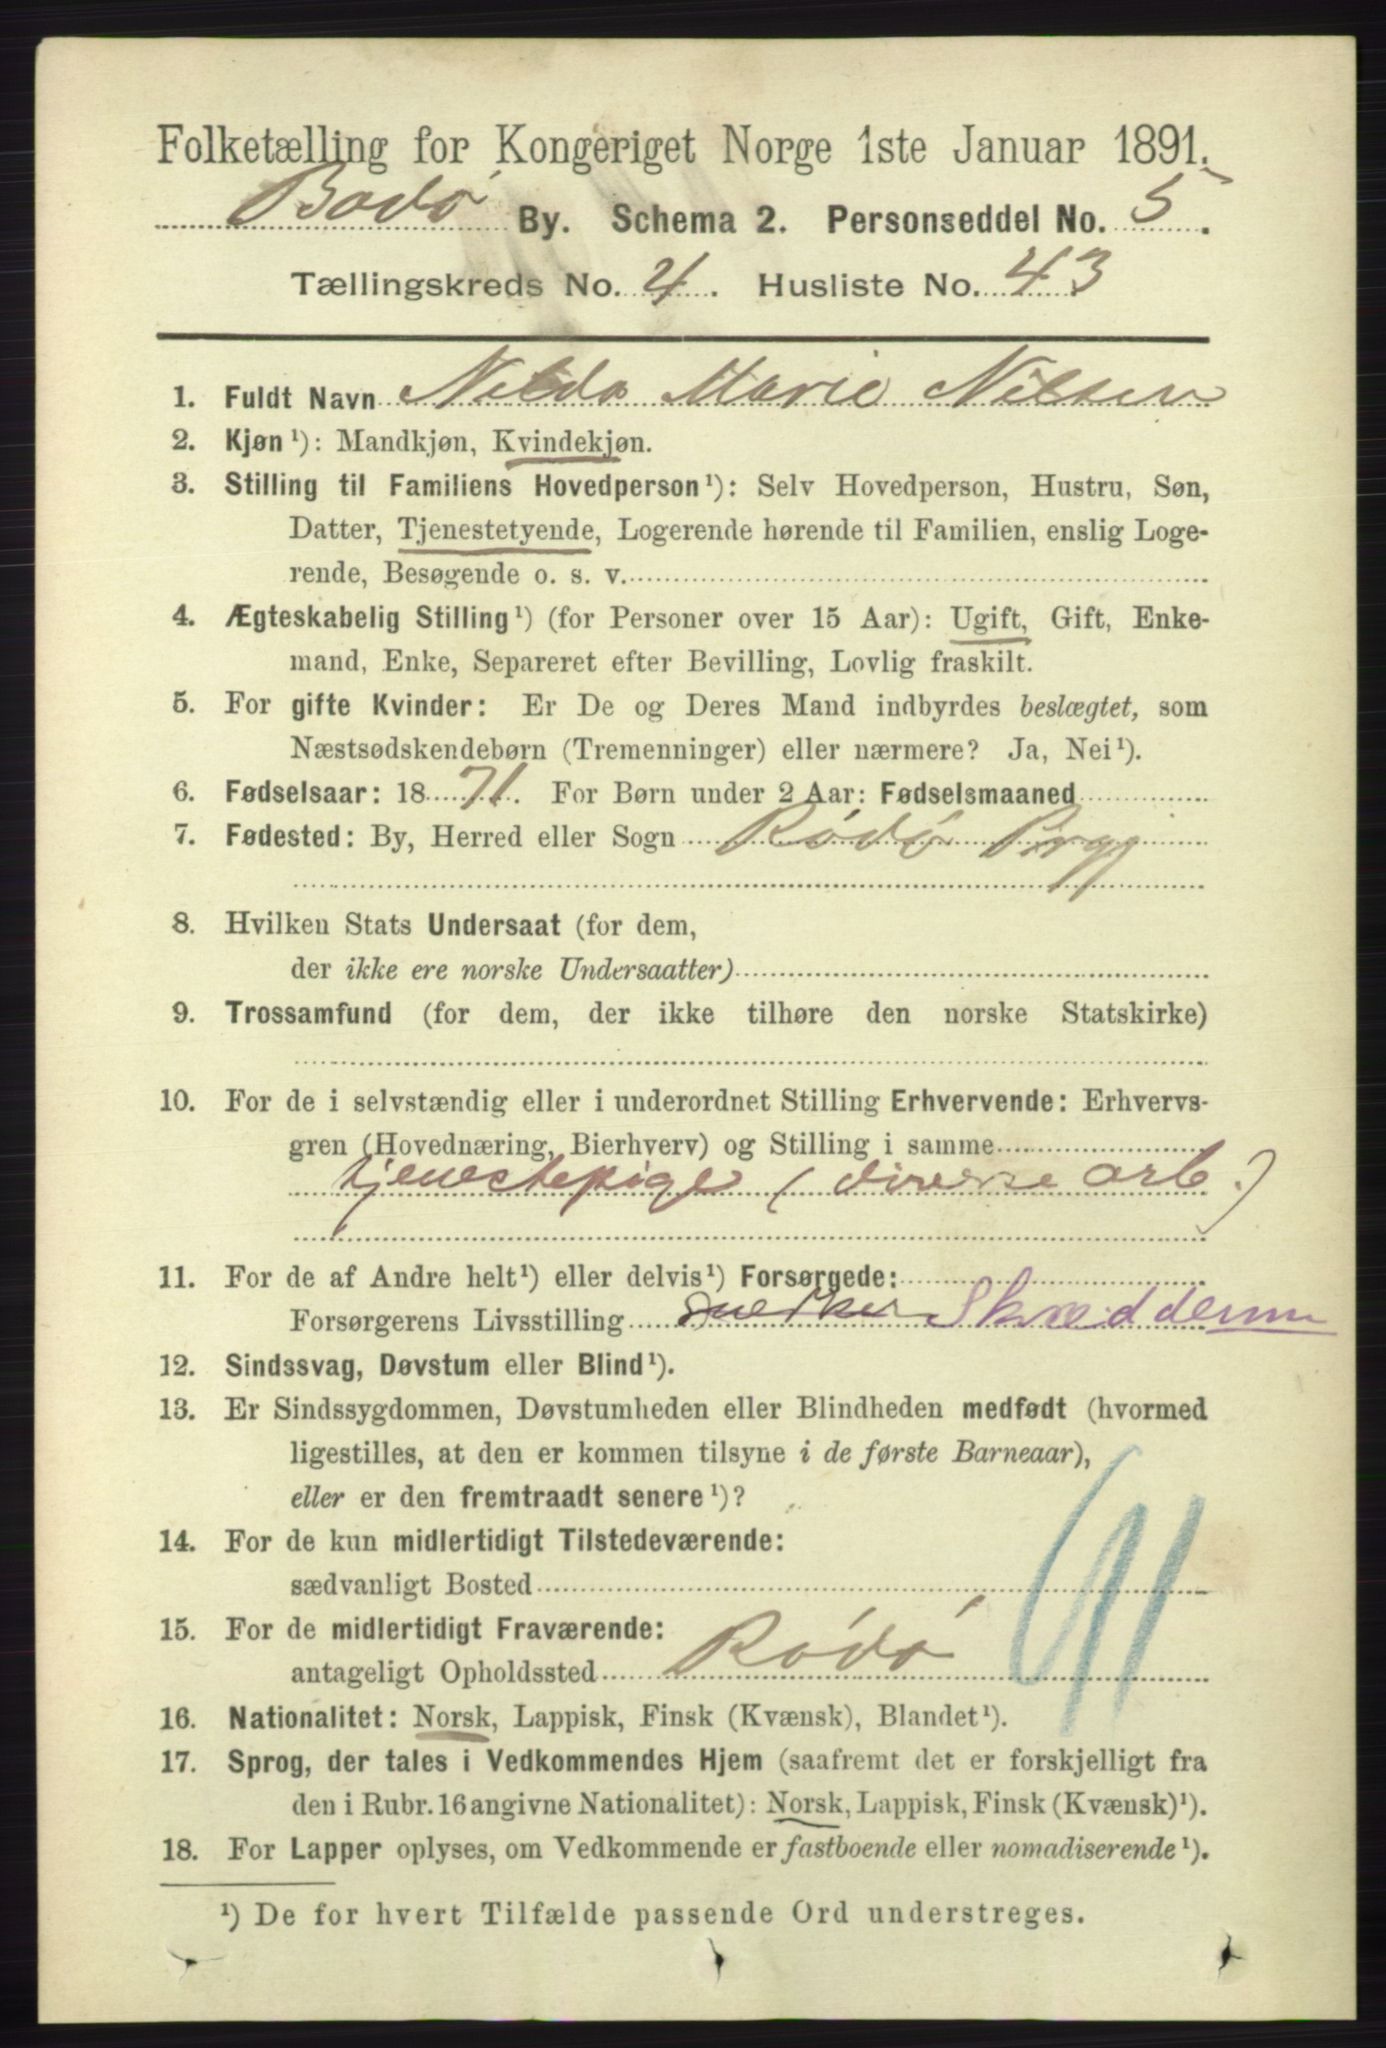 Folketælling for Kongeriget Norge 1ste Januar 1891.
Bodø By. Schema 2. Personseddel No. 5.
Tællingskreds No. 4. Husliste No. 43
1. Fuldt Navn Nilda Marie Nilsen
2. Kjøn ¹): Mandkjøn, Kvindekjøn.
3. Stilling til Familiens Hovedperson ¹): Selv Hovedperson, Hustru, Søn,
Datter, Tjenestetyende, Logerende hørende til Familien, enslig Loge-
rende, Besøgende o. s. v.
4. Ægteskabelig Stilling ¹) (for Personer over 15 Aar): Ugift, Gift, Enke-
mand, Enke, Separeret efter Bevilling, Lovlig fraskilt.
5. For gifte Kvinder: Er De og Deres Mand indbyrdes beslægtet, som
Næstsødskendebørn (Tremenninger) eller nærmere? Ja, Nei ¹).
6. Fødselsaar: 1871. For Børn under 2 Aar: Fødselsmaaned
7. Fødested: By, Herred eller Sogn Rødø Prgj
8. Hvilken Stats Undersaat (for dem,
der ikke ere norske Undersaatter)
9. Trossamfund (for dem, der ikke tilhøre den norske Statskirke)
10. For de i selvstændig eller i underordnet Stilling Erhvervende: Erhvervs-
gren (Hovednæring, Bierhverv) og Stilling i samme
tjenestepige (diverse arb.)
11. For de af Andre helt ¹) eller delvis ¹) Forsørgede:
Forsørgerens Livsstilling
12. Sindssvag, Døvstum eller Blind ¹).
13. Er Sindssygdommen, Døvstumheden eller Blindheden medfødt (hvormed
ligestilles, at den er kommen tilsyne i de første Barneaar),
eller er den fremtraadt senere ¹)?
14. For de kun midlertidigt Tilstedeværende:
sædvanligt Bosted
15. For de midlertidigt Fraværende:
antageligt Opholdssted Rødø
16. Nationalitet: Norsk, Lappisk, Finsk (Kvænsk), Blandet ¹).
17. Sprog, der tales i Vedkommendes Hjem (saafremt det er forskjelligt fra
den i Rubr. 16 angivne Nationalitet): Norsk, Lappisk, Finsk (Kvænsk) ¹).
18. For Lapper oplyses, om Vedkommende er fastboende eller nomadiserende ¹).
¹) De for hvert Tilfælde passende Ord understreges.